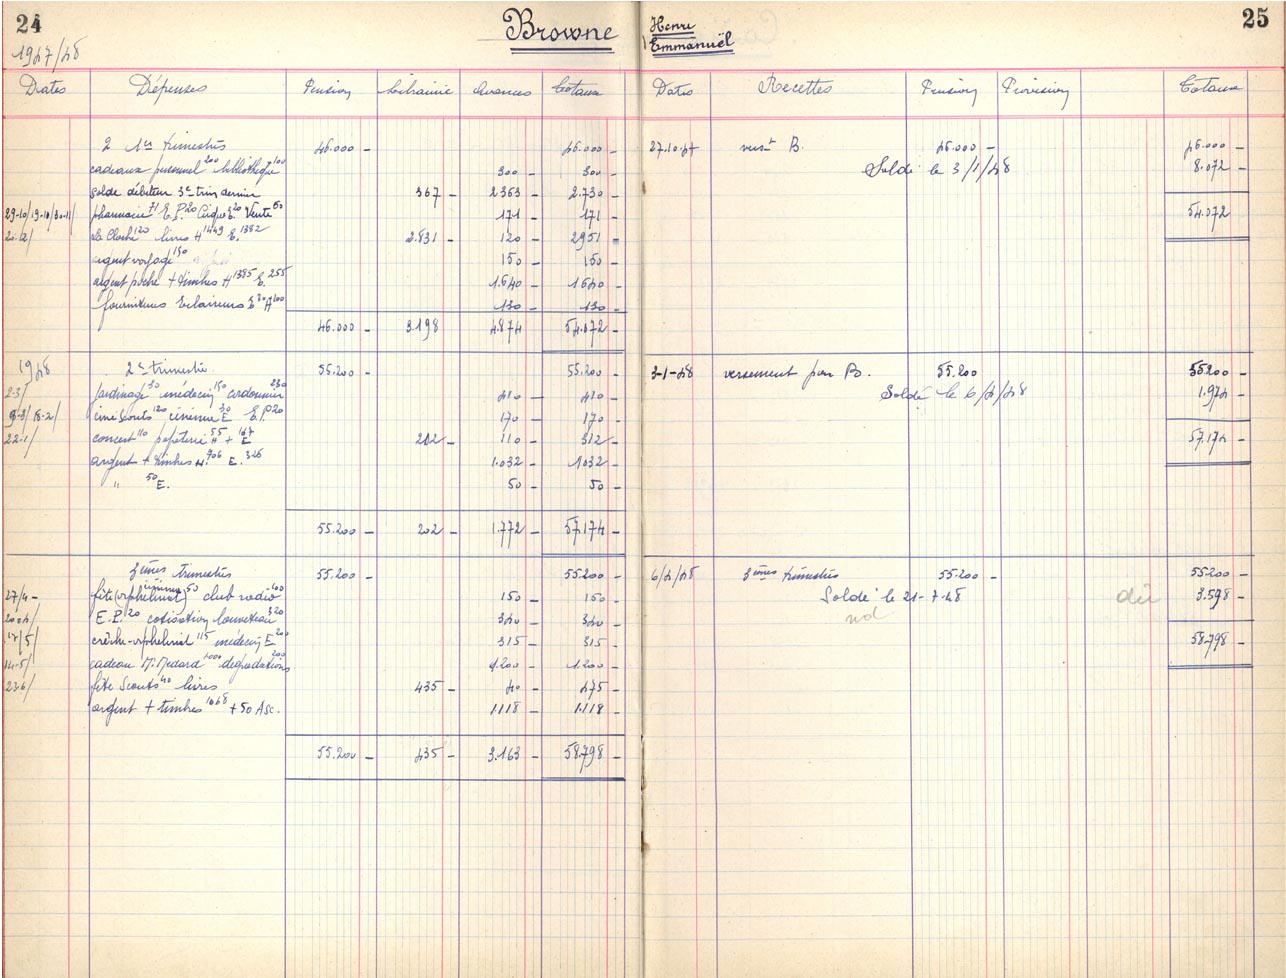 24
1947/48
Browne
Dates Dépenses Pension Librairie Avances Totaux
2 1ers trimestres 46.000 - 46.000 -
cadeaux personnel 200 bibliothèque 100 300 - 300 -
solde débiteur 3e trim dernier 367 - 2.363 - 2.730 -
29-10/19-10/30-11/ pharmacie 71 E.P. 20 Cirque E. 20 Vente 60 171 - 171 -
2.12/ La Cloche 120 livres H 1449 E. 1382 2.831 - 120 - 2951 =
argent voyage 150 150 - 150 -
argent poche + timbres H 1385 E. 255 1.640 - 1640 -
fournitures Eclaireurs E 30 H 100 130 - 130 -
46.000 - 3.198 4.874 54.072 -
1948 2e trimestre. 55.200 - 55.200 -
2-3/ Jardinage 30 médecin 150 cordonnier 230 410 - 410 -
9-3/18-2/ ciné Scouts 120 cinéma E 30 E.P. 20 170 - 170 -
22-1/ concert 110 papeterie H 55 + E 147 202 - 110 - 312 -
argent + timbres H. 706 E. 326 1.032 - 1032 -
" 50 E. 50 - 50 -
55.200 - 202 - 1.772 - 57.174 -
3èmes trimestres 55.200 - 55.200 -
27/4 - fête (orphelinat) cinéma 50 club radio 100 150 - 150 -
20.4/ E.P. 20 cotisation louveteau 320 340 - 340 -
12/5/ crèche-orphelinat 115 médecin E 200 315 - 315 -
14-5/ cadeau Mr Medard 1000 dégradations 200 1.200 - 1.200 -
23.6/ fête Scouts 40 livres 435 - 40 - 475 -
argent + timbres 1068 + 50 Asc. 1118 - 1.118 -
55.200 - 435 - 3.163 - 58.798 -
25
Henri
Emmanuël
Dates Recettes Pension Provision Totaux
27.10.47 verst B. 46.000 - 46.000 -
Soldé le 3/1/48 8.072 -
54.072
3-1-48 versement par B. 55.200 55.200 -
Soldé le 6/4/48 1.974 -
57.174 -
6/4/48 3èmes trimestres 55.200 - 55.200 -
Soldé le 21-7-48 dû 3.598 -
nd
58.798 -